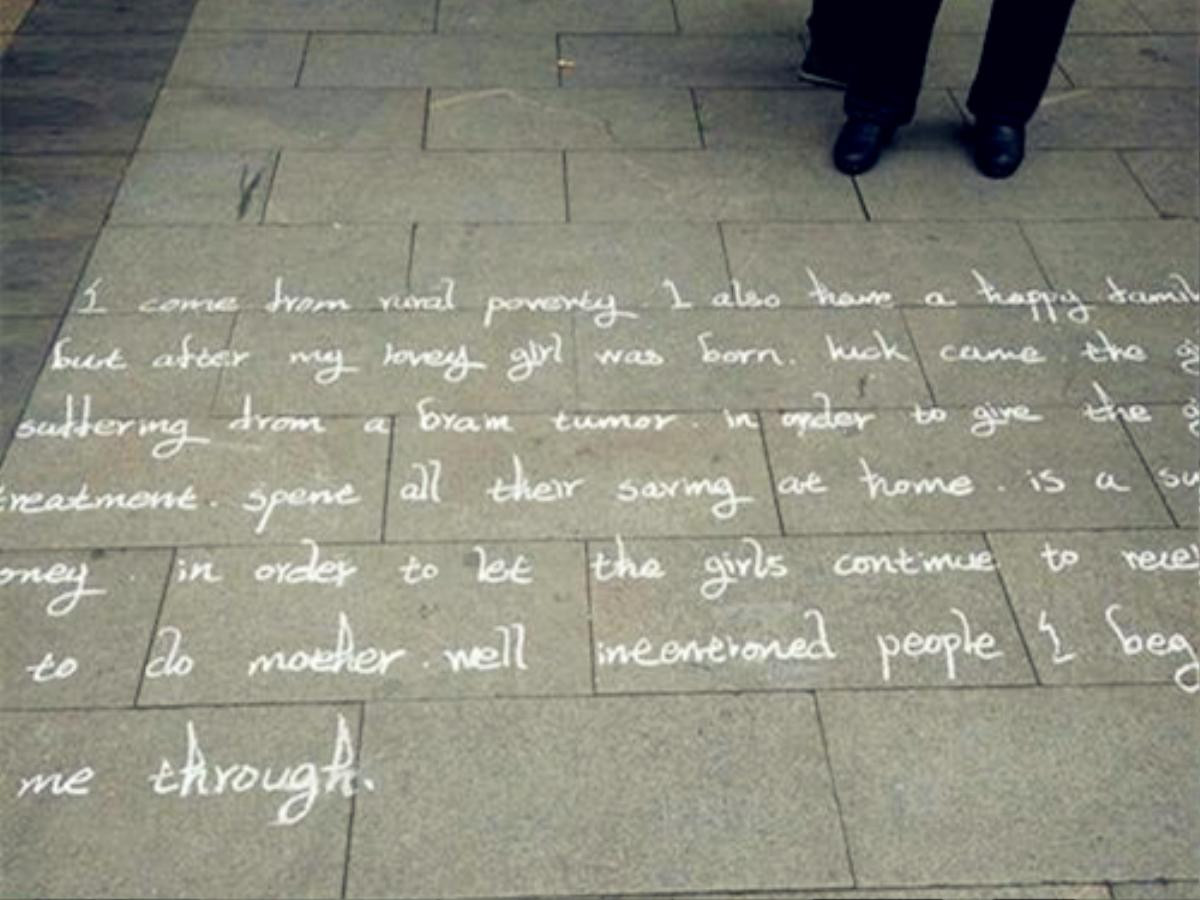 I come from rural poverty. I also have a happy famil
but after my lovey girl was born. luck came the g
suffering from a brain tumor. in order to give the g
treatment. spent all their saving at home. is a su
oney. in order to let the girls continue to recei
to do mother. well intentioned people I beg
me through.